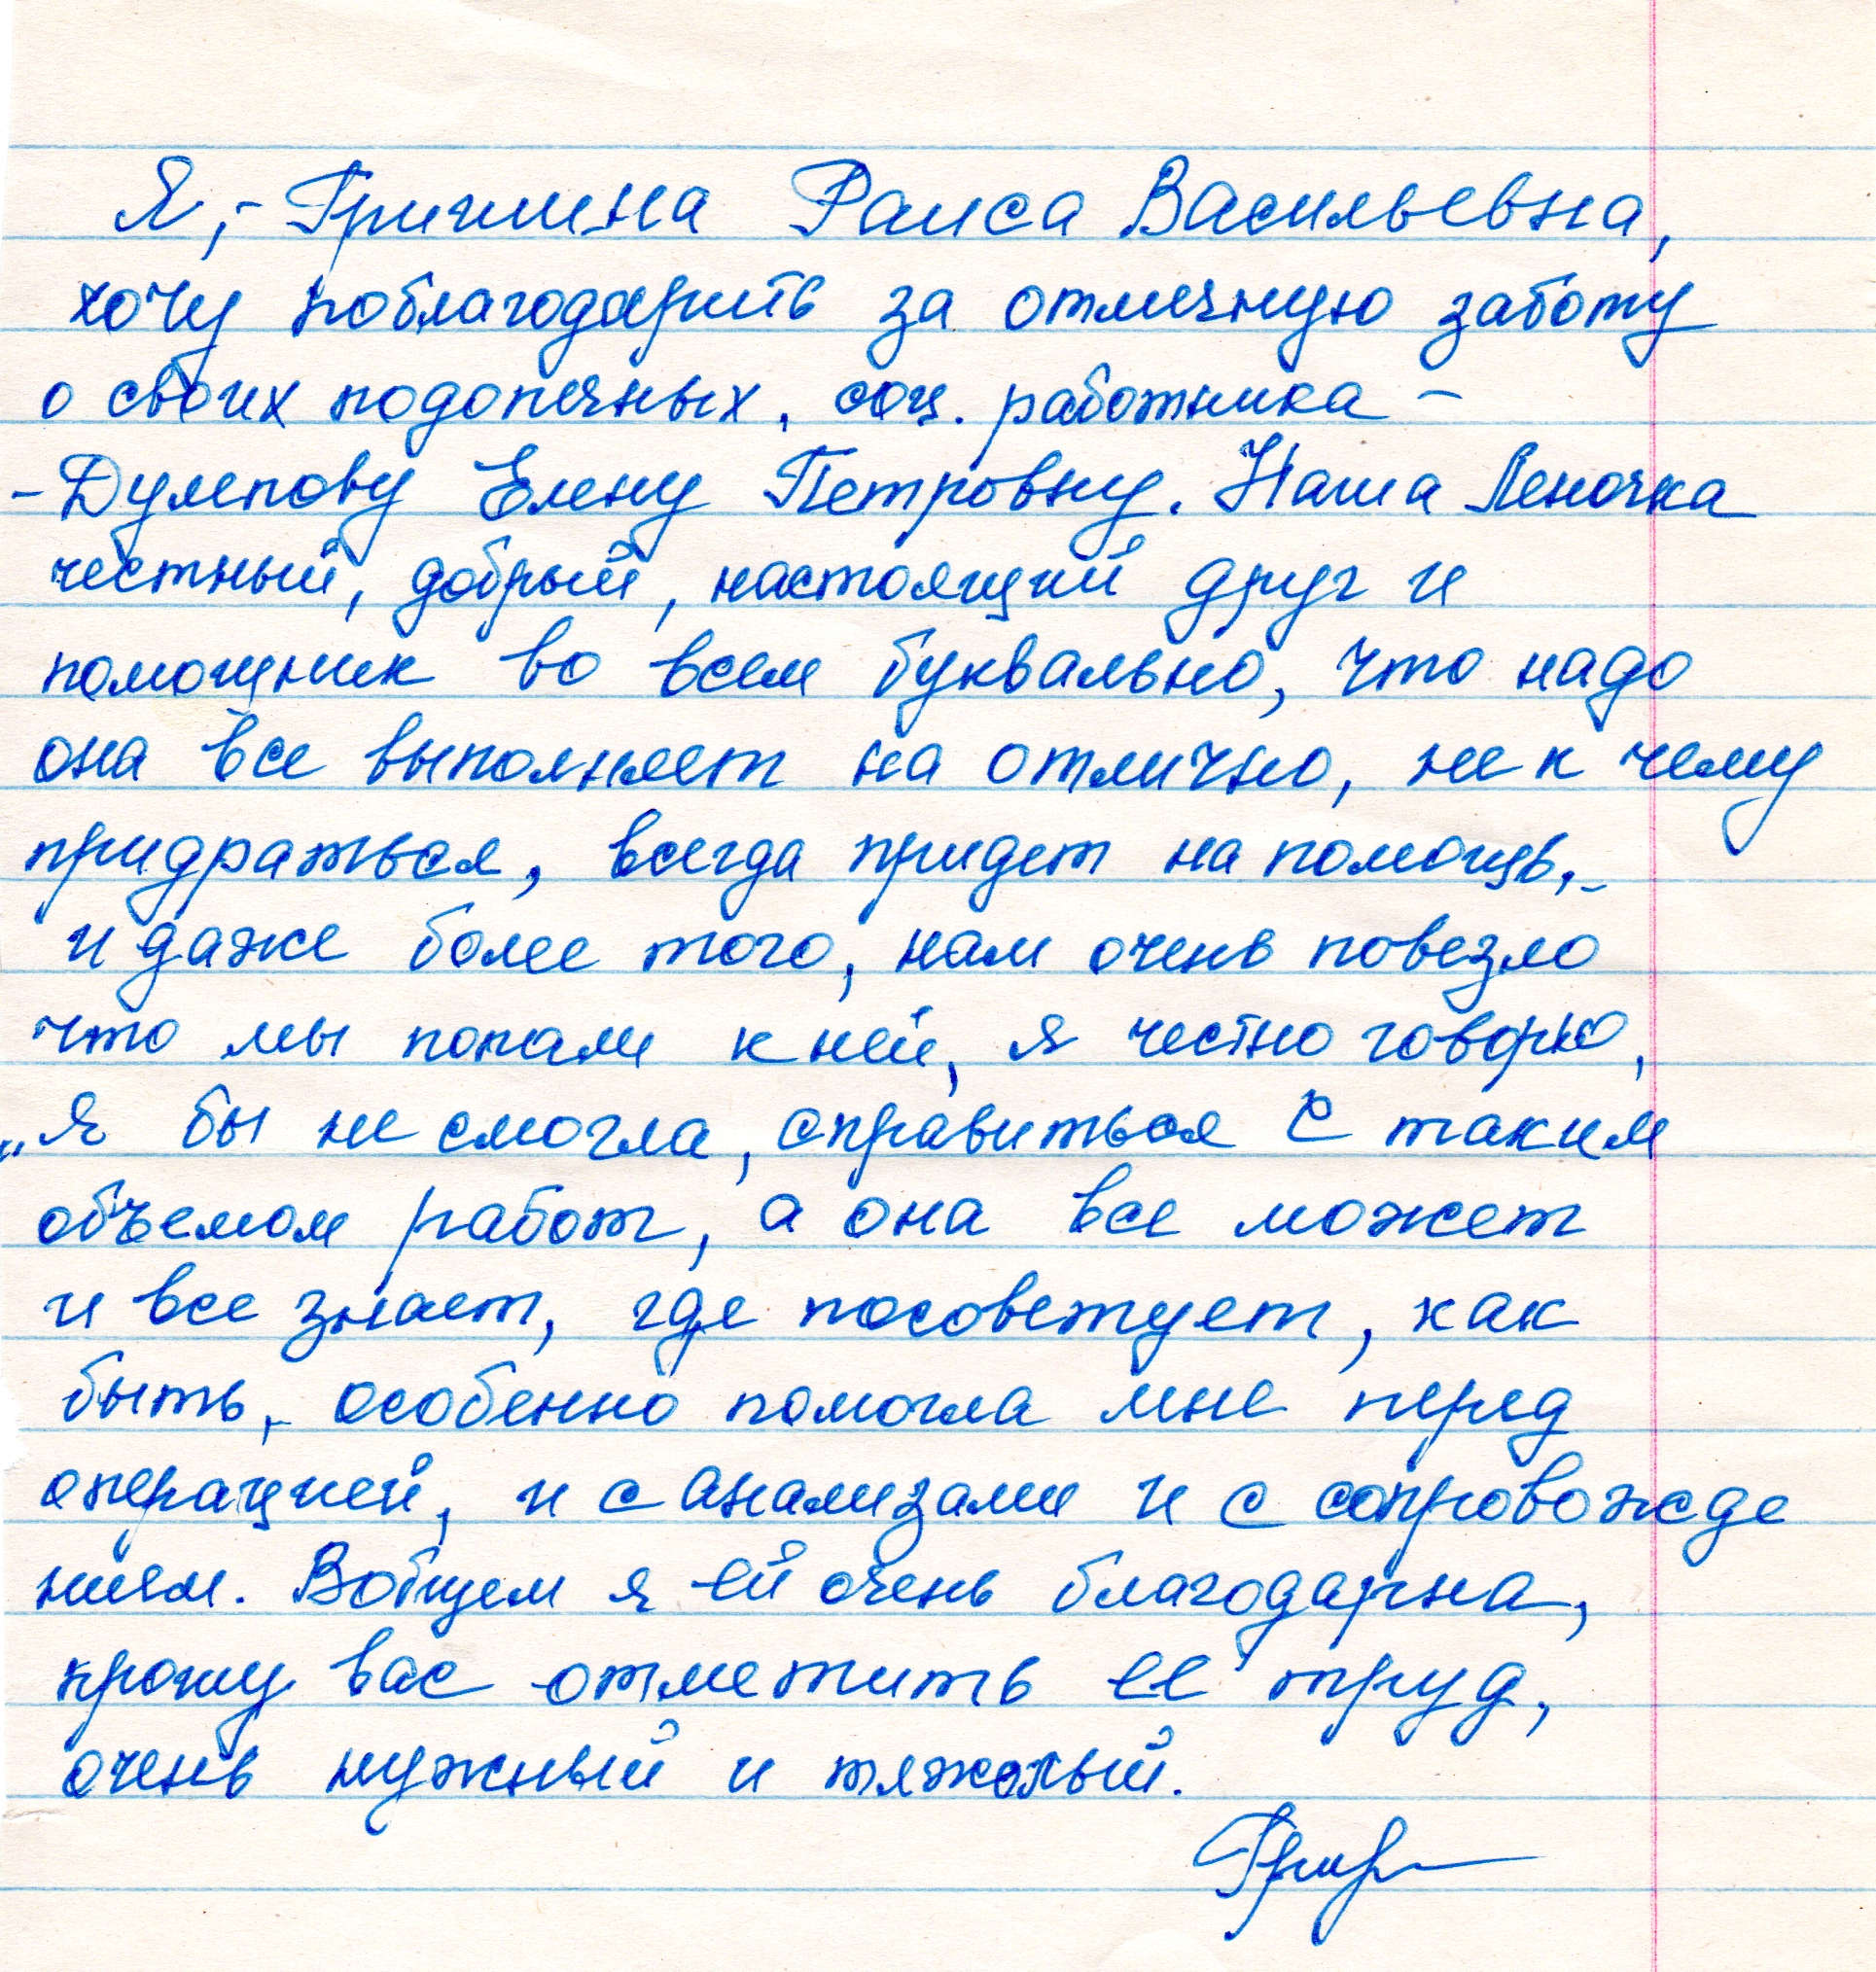 Я,- Гришина Раиса Васильевна,
хочу поблагодарить за отличную заботу
о своих подопечных, соц. работника -
- Дулепову Елену Петровну. Наша Леночка
честный, добрый, настоящий друг и
помощник во всем буквально, что надо
она все выполняет на отлично, не к чему
придраться, всегда придет на помощь,-
и даже более того, нам очень повезло
что мы попали к ней, я честно говорю,
„Я бы не смогла, справиться с таким
объемом работ, а она все может
и все знает, где посоветует, как
быть,- особенно помогла мне перед
операцией, и с анализами и с сопровожде
нием. Вобщем я ей очень благодарна,
прошу вас отметить ее труд,
очень нужный и тяжолый.